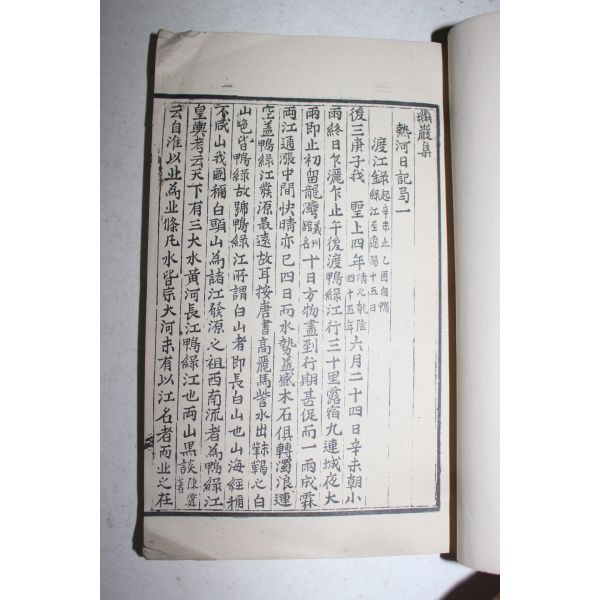 燕巖集
熱河日記易一
渡江錄起辛未止乙酉自鴨綠江至遼陽十五日
後三庚子我 聖上四年清之乾隆四十五年六月二十四日辛未朝小
雨終日乍灑乍止午後渡鴨綠江行三十里露宿九連城夜大
雨即止初留龍灣義州館名十日方物盡到行期甚促而一雨成霖
兩江通漲中間快晴亦已四日而水勢益盛木石俱轉濁浪連
空盖鴨綠江發源最遠故耳按唐書高麗馬訾水出靺鞨之白
山色若鴨綠故號鴨綠江所謂白山者即長白山也山海經稱
不咸山我國稱白頭山為諸江發源之祖西南流者為鴨綠江
皇輿考云天下有三大水黃河長江鴨綠江也兩山墨談陳霆著
云自淮以北為北條凡水皆宗大河未有以江名者而北之在